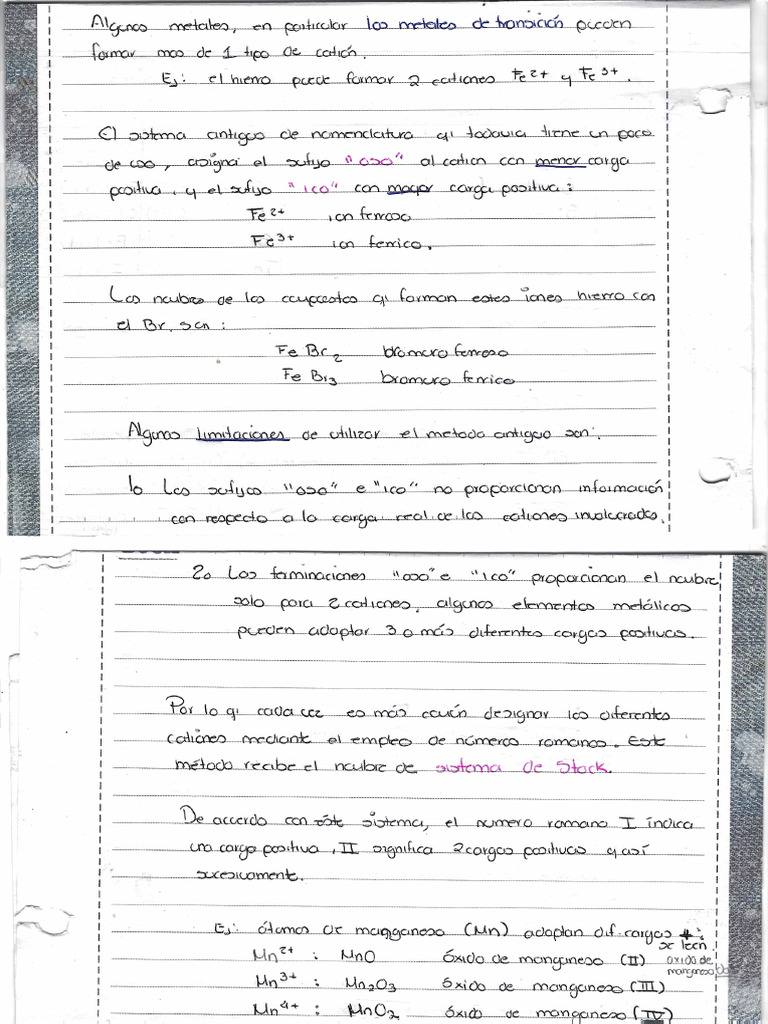 Algunos metales, en particular los metales de transición pueden
formar mas de 1 tipo de catión.
Ej: el hierro puede formar 2 cationes Fe2+ y Fe3+.
El sistema antiguo de nomenclatura q; todavia tiene un poco
de uso, asigna el sufijo "oso" al cation con menor carga
positiva, y el sufijo "ico" con mayor carga positiva:
Fe2+ ion ferroso
Fe3+ ion ferrico.
Los noubres de los compuestos q; forman estos iones hierro con
el Br, son:
FeBr2 bromuro ferroso
FeBr3 bromuro ferrico
Algunas limitaciones de utilizar el metodo antiguo son:
1o Los sufijos "oso" e "ico" no proporcionan información
con respecto a la carga real de los cationes involucrados.
2o Las terminaciones "oso" e "ico" proporcionan el noubre
solo para 2 cationes, algunos elementos metálicos
pueden adoptar 3 o más diferentes cargas positivas.
Por lo q; cada vez es más común designar los diferentes
cationes mediante el empleo de números romanos. Este
método recibe el noubre de sistema de Stock.
De acuerdo con éste sistema, el numero romano I indica
una carga positiva, II significa 2 cargas positivas y así
sucesivamente.
Ej: átomos de manganeso (Mn) adoptan dif. cargas +:
se leen
Mn2+ : MnO óxido de manganeso (II) óxido de
manganeso dos
Mn3+ : Mn2O3 óxido de manganeso (III)
Mn4+ : MnO2 óxido de manganeso (IV)